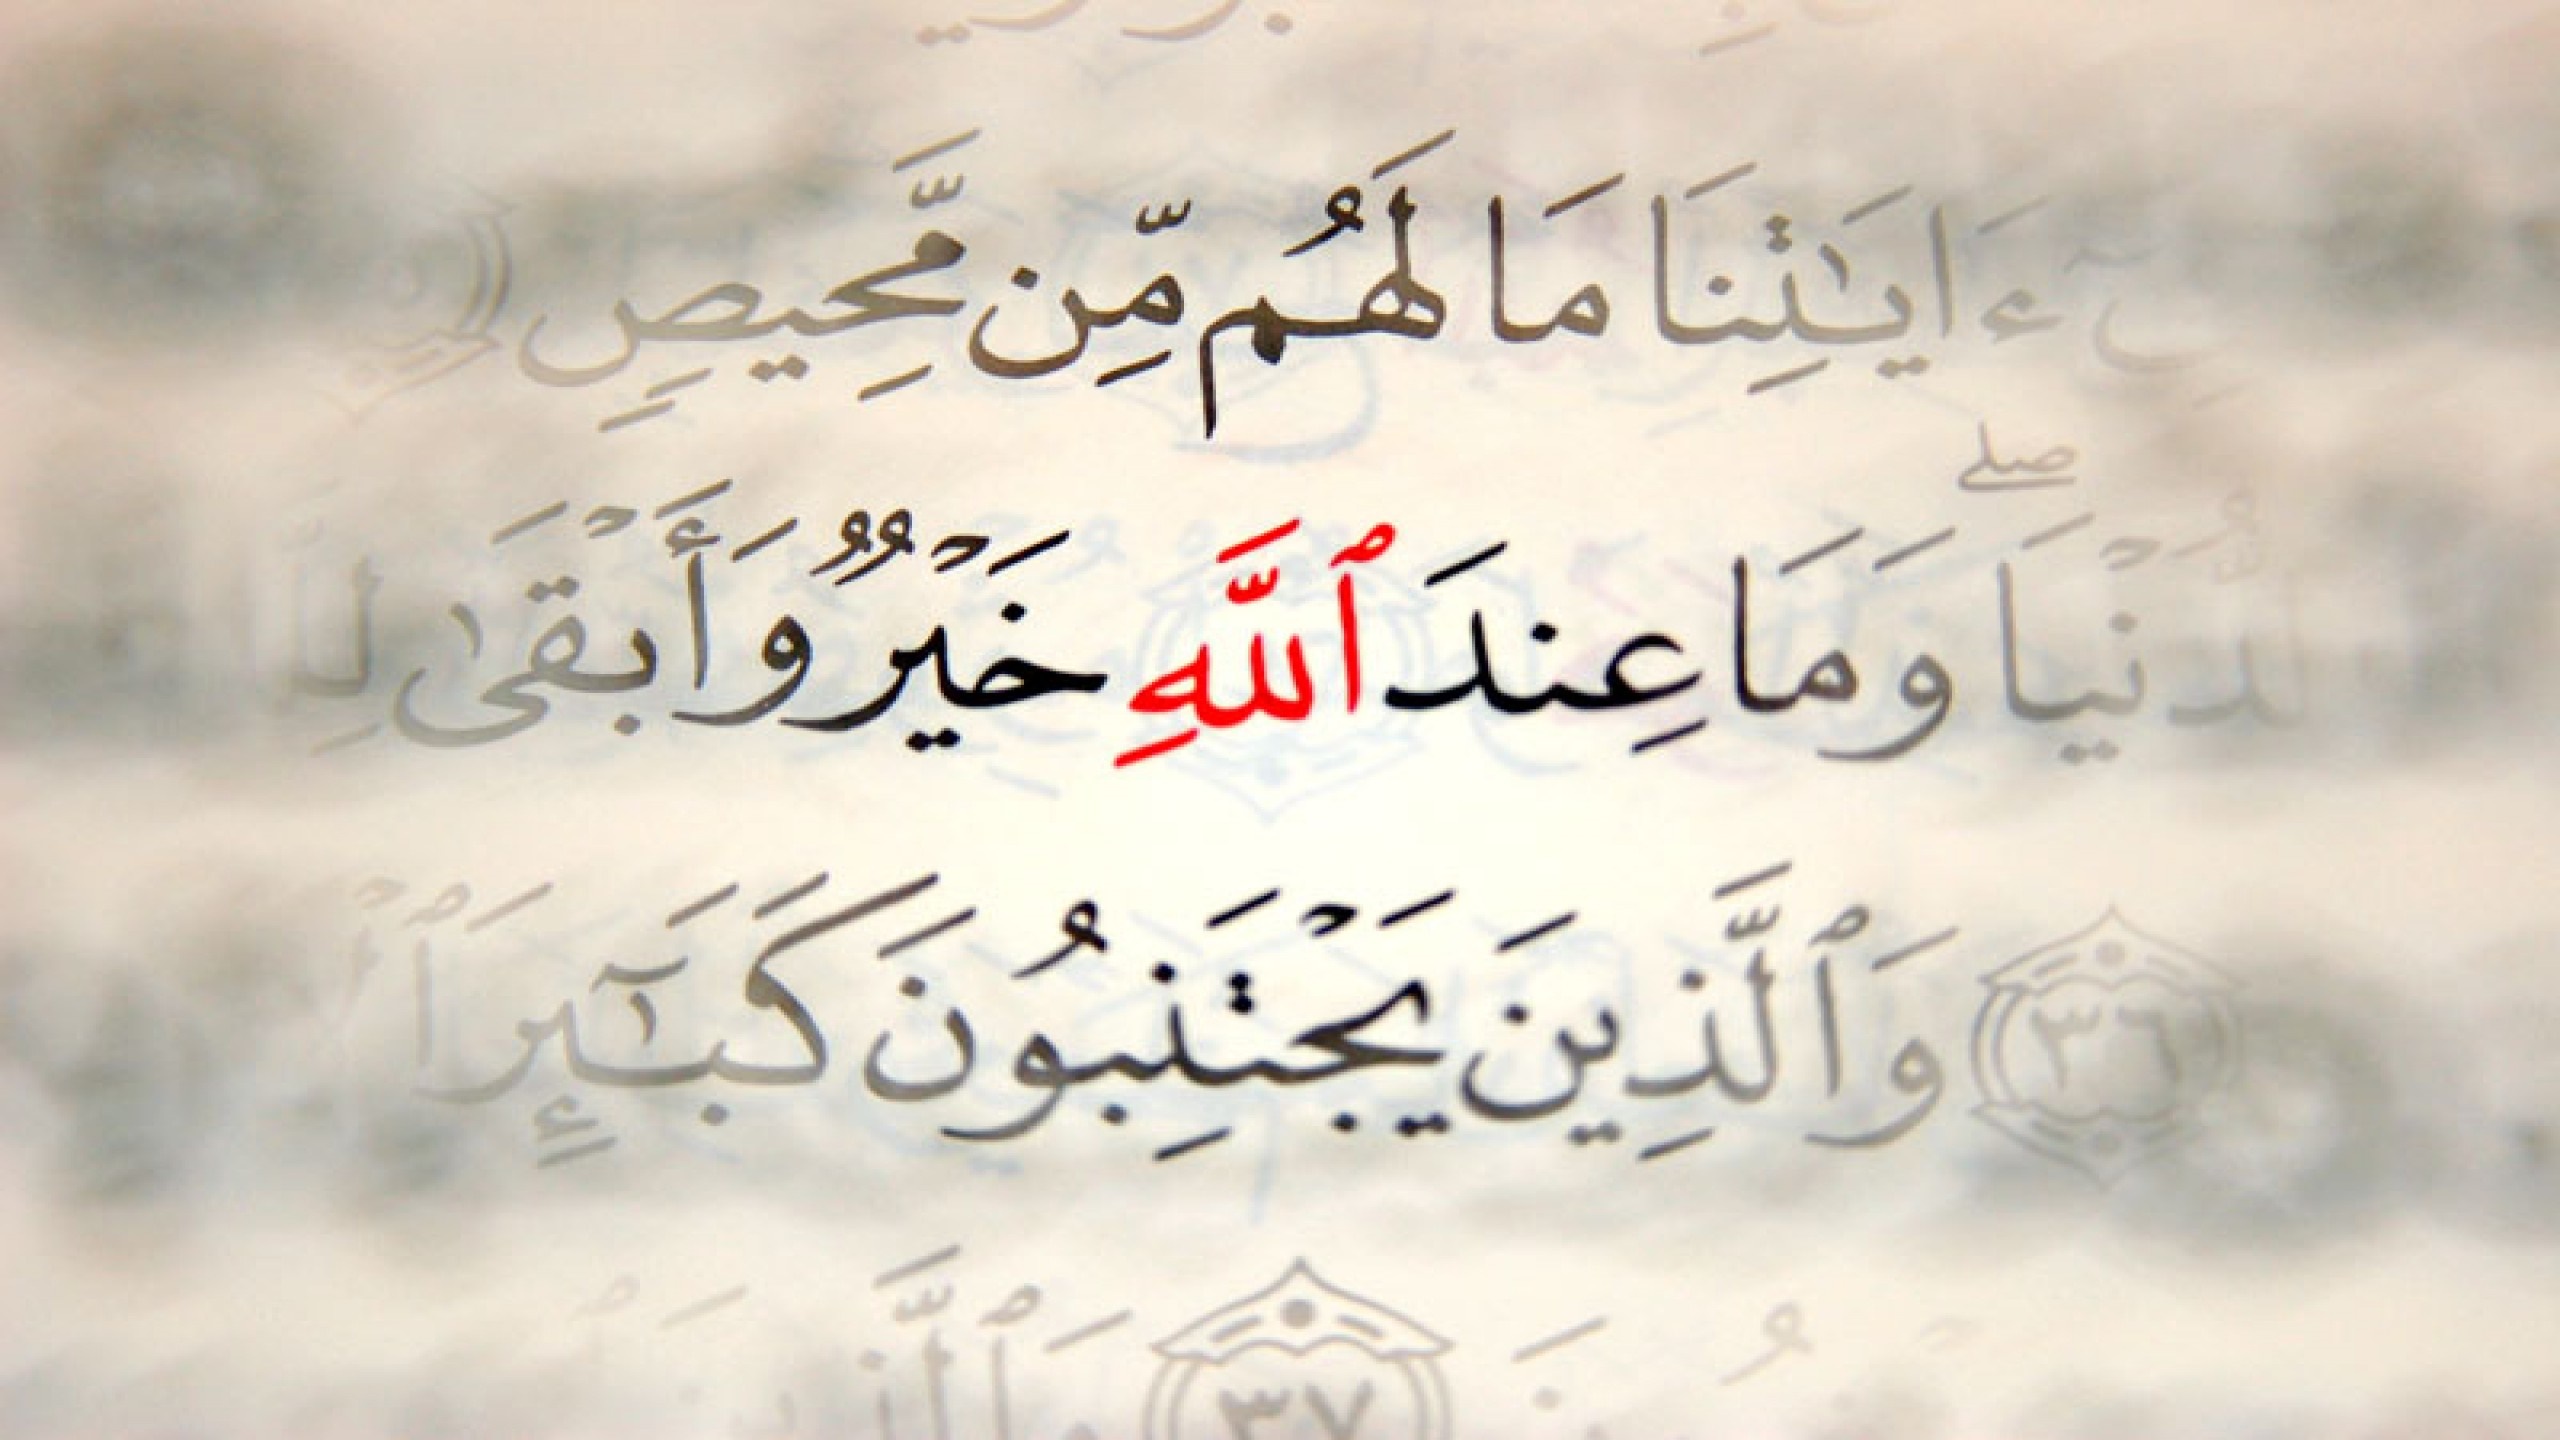 ءَايَٰتِنَا مَا لَهُم مِّن مَّحِيصٍ
ٱلدُّنْيَا ۖ وَمَا عِندَ ٱللَّهِ خَيْرٌ وَأَبْقَىٰ
٣٦ وَٱلَّذِينَ يَجْتَنِبُونَ كَبَٰٓئِرَ
٣٧ وَٱلَّذِ